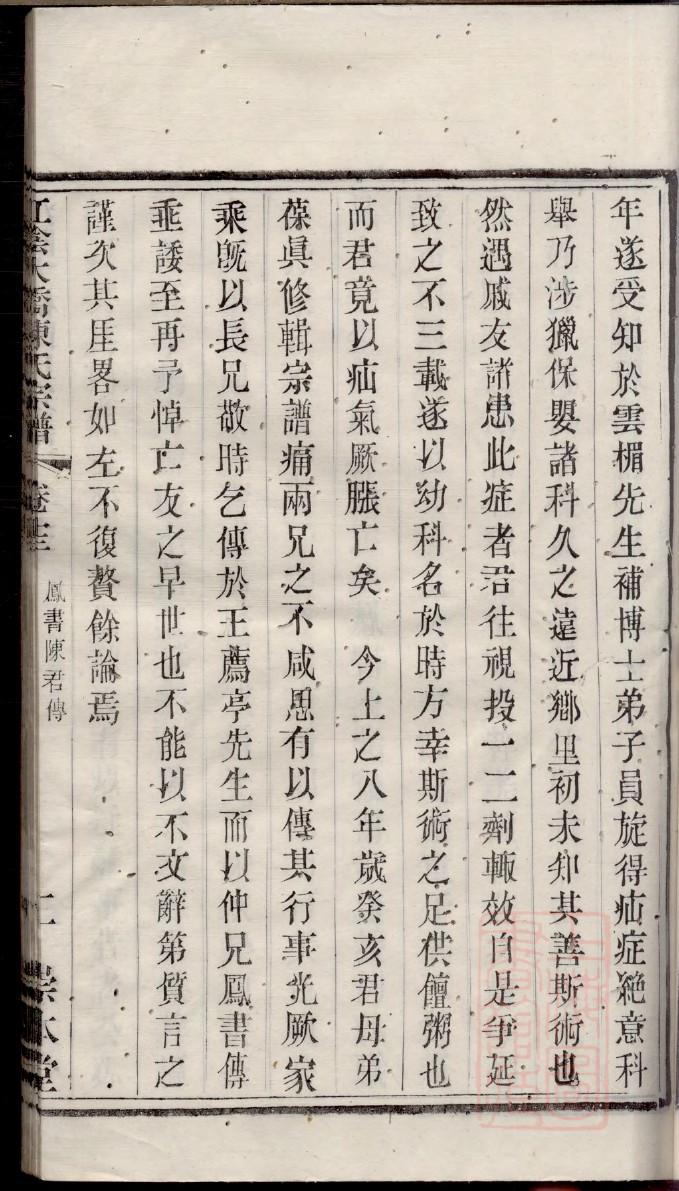 年遂受知於雲楣先生補博士弟子員旋得疝症絕意科
舉乃涉獵保嬰諸科久之遠近鄉里初未知其善斯術也
然遇戚友諸患此症者君往視投一二劑輒效自是爭延
致之不三載遂以幼科名於時方幸斯術之足供饘粥也
而君竟以疝氣厥脹亡矣　今上之八年歲癸亥君母弟
葆眞修輯宗譜痛兩兄之不咸思有以傳其行事光厥家
乘旣以長兄敬時乞傳於王薦亭先生而以仲兄鳳書傳
乖諉至再予悼亡友之早世也不能以不文辭第質言之
謹次其厓畧如左不復贅餘論焉
江陰大橋陳氏宗譜 卷十三 鳳書陳君傳 二 崇本堂